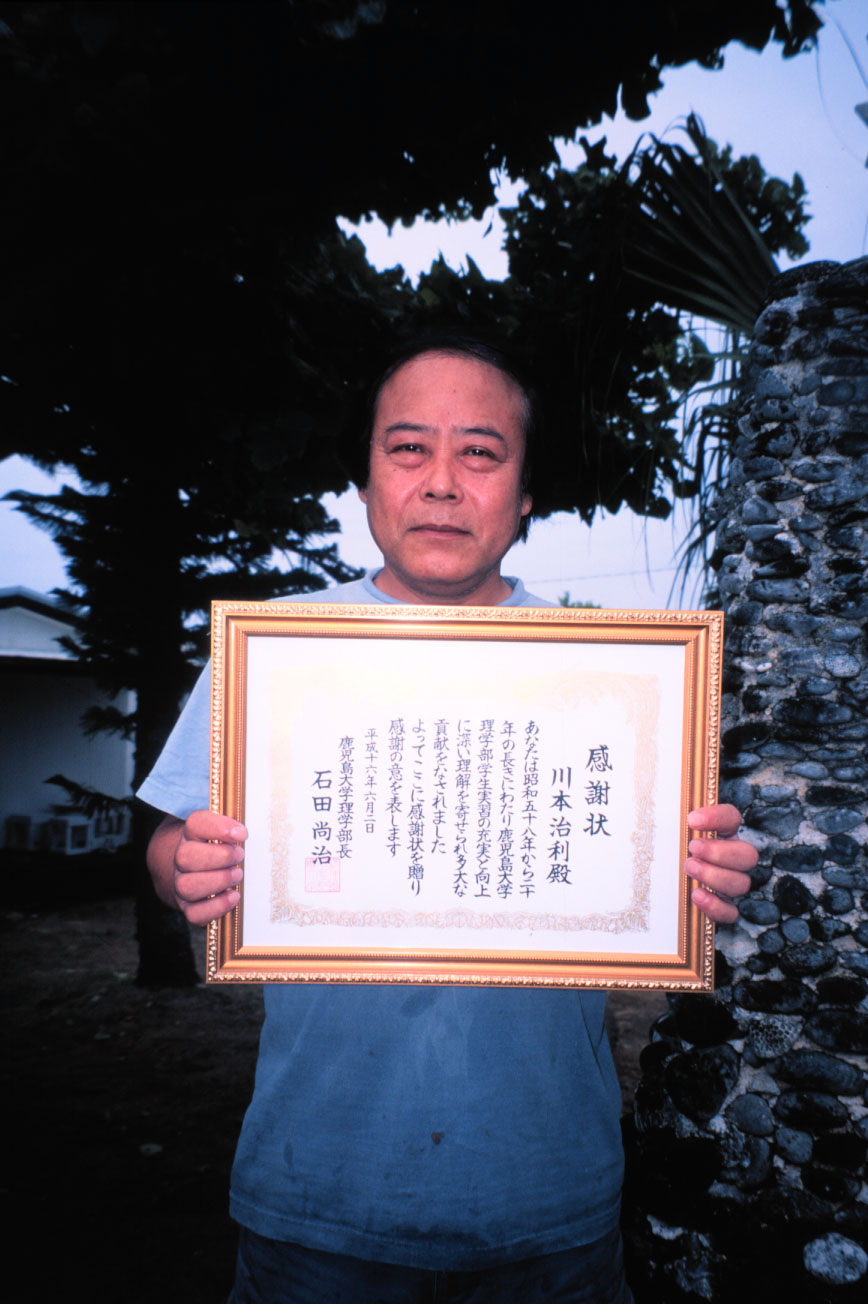 感謝状
川本治利殿
あなたは昭和五十八年から二十
年の長きにわたり鹿児島大学
理学部学生実習の充実と向上
に深い理解を寄せられ多大な
貢献をなされました
よってここに感謝状を贈り
感謝の意を表します
平成十六年六月二日
鹿児島大学理学部長
石田尚治